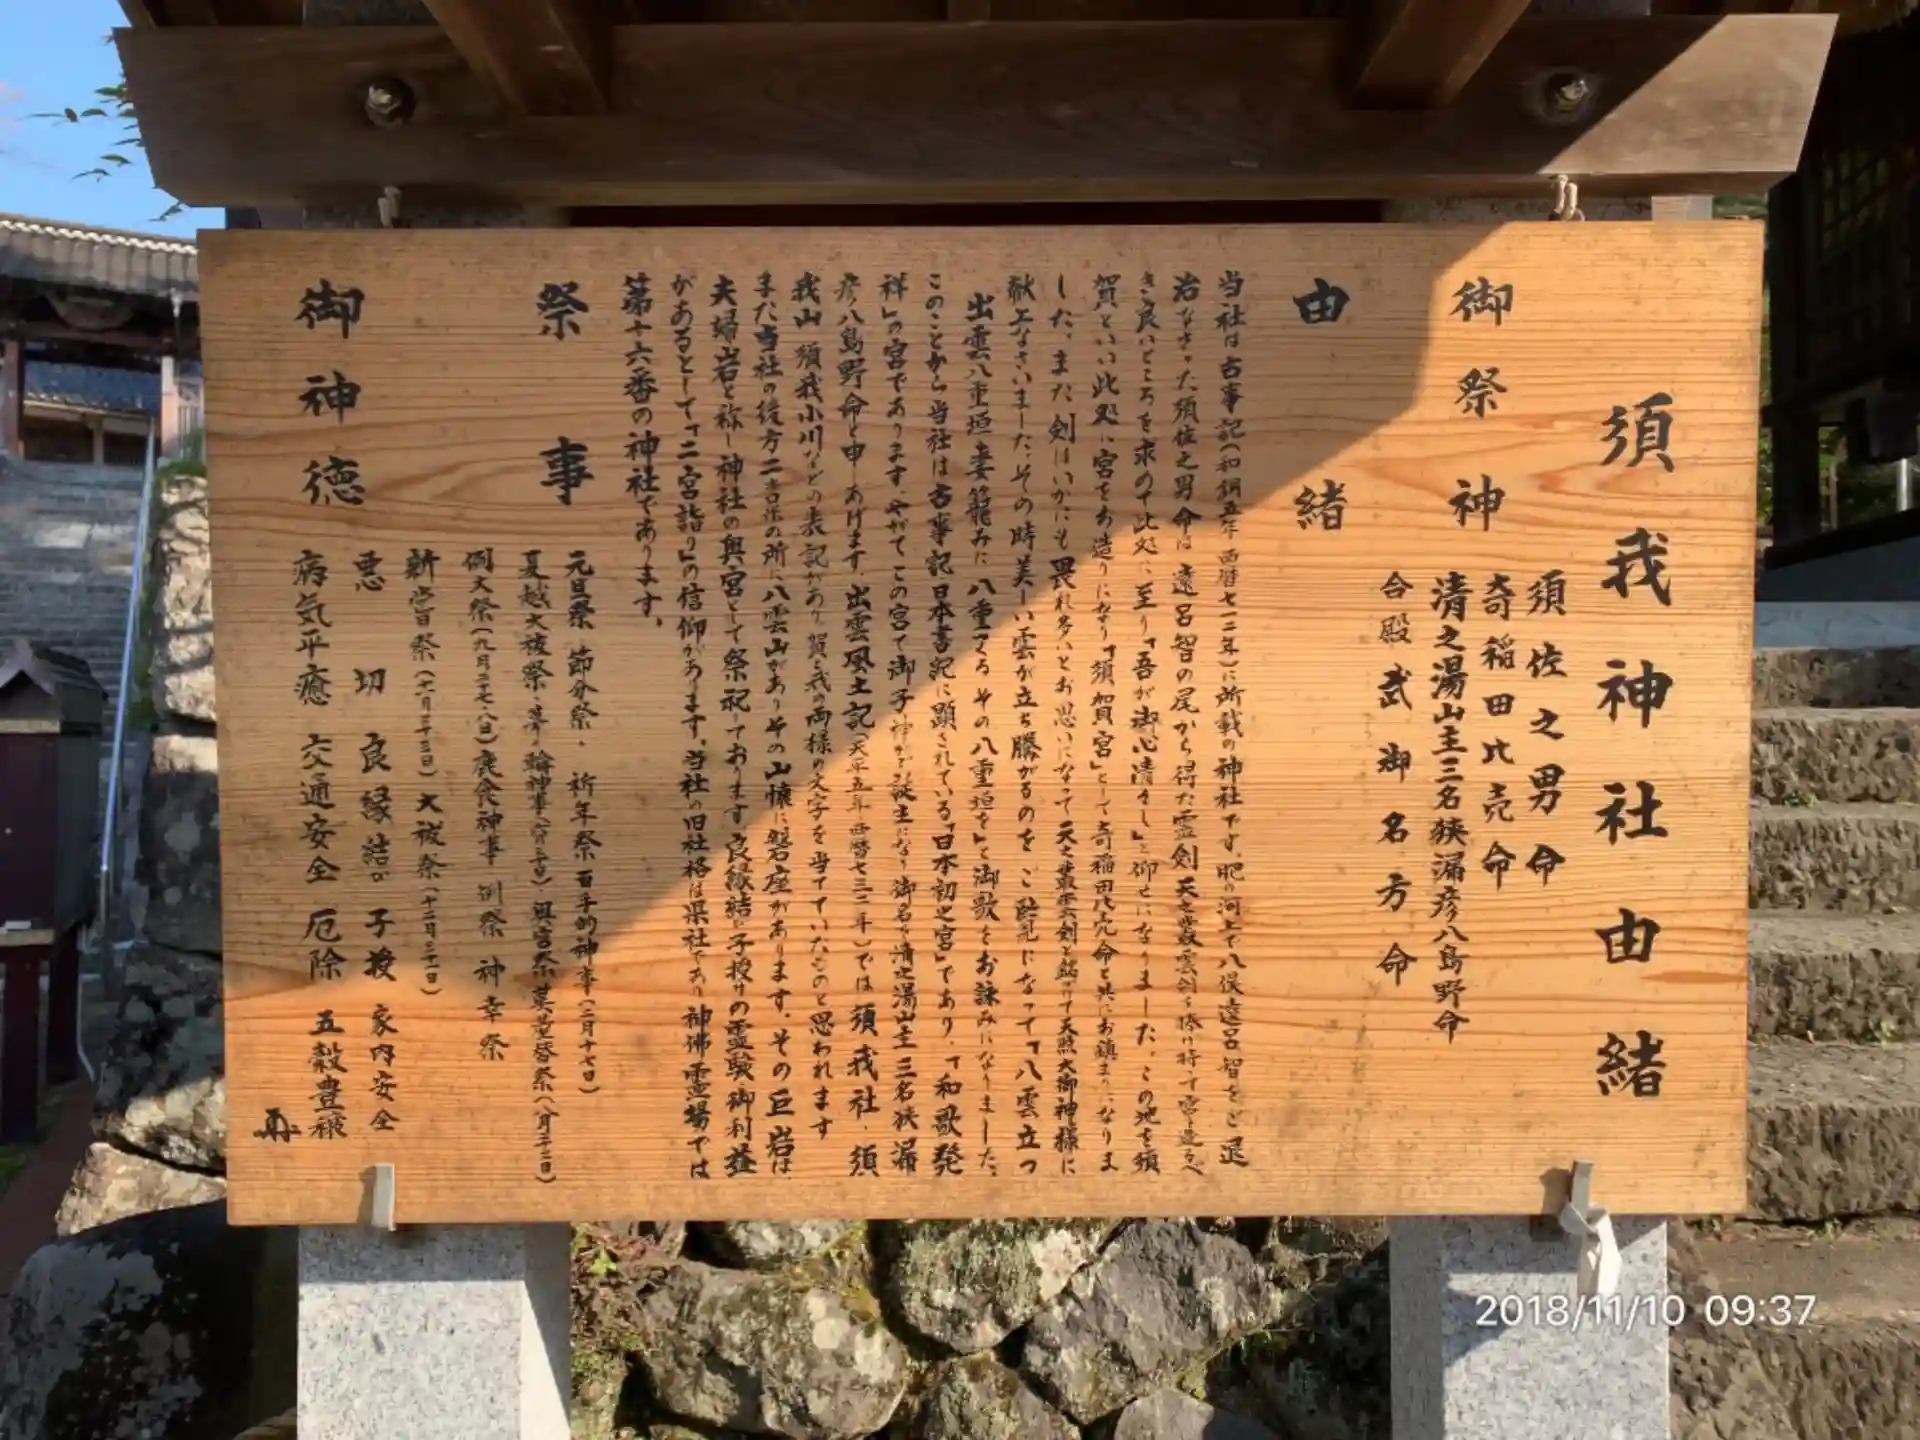 須我神社由緒
御祭神
須佐之男命
奇稲田比売命
清之湯山主三名狭漏彦八島野命
合殿 武御名方命
由緒
当社は古事記(和銅五年 西暦七一二年)に所載の神社です。肥の河上で八俣遠呂智をご退
治なさった須佐之男命は 遠呂智の尾から得た霊剣 天之叢雲剣を捧げ持って宮を造るべ
き良いところを求めて此処に至り「吾が御心清々し」と仰せになりました。この地を須
賀といい此処に宮をお造りになり「須賀宮」として奇稲田比売命と共にお鎮まりになりま
した。また 剣はいかにも畏れ多いとお思いになって天之叢雲剣と銘して天照大御神様に
献上なさいました。その時美しい雲が立ち騰がるのを ご覧になって「八雲立つ
出雲八重垣 妻籠みに 八重垣つくる その八重垣を」と御歌をお詠みになりました。
このことから当社は古事記 日本書記に顕されている「日本初之宮」であり、「和歌発
祥」の宮であります。やがて この宮で御子神がご誕生になり御名を清之湯山主三名狭漏
彦八島野命と申しあげます。出雲風土記(天平五年 西暦七三三年)では須我社・須
我山 須我小川などの表記があり 賀と我の両様の文字を当てていたものと思われます
また当社の後方二吉米の所に八雲山がありその山懐に磐座があります。その巨岩は
夫婦岩と称し神社の奥宮として祭祀しております。良縁結び子授けの霊験御利益
があるとして「二宮詣り」の信仰があります。当社の旧社格は県社であり神佛霊場では
第十六番の神社であります。
祭事
元旦祭・節分祭・祈年祭 百手的神事(二月十七日)
夏越大祓祭・茅の輪神事(六月三十日) 奥宮祭 茣蓙替祭(八月二十二日)
例大祭(九月二十七八日) 鹿食神事 例祭 神幸祭
新嘗祭(十一月二十三日) 大祓祭(十二月三十一日)
御神徳
悪切 良縁結び 子授 家内安全
病気平癒 交通安全 厄除 五穀豊穣